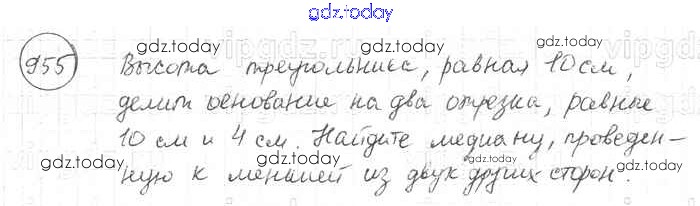 gdz.today
955 Высота треугольника, равная 10 см,
gdz.today gdz.today
делит основание на два отрезка, равные
gdz.today gdz.today
10 см и 4 см. Найдите медиану, проведен-
gdz.today
ную к меньшей из двух других сторон.
gdz.today gdz.today